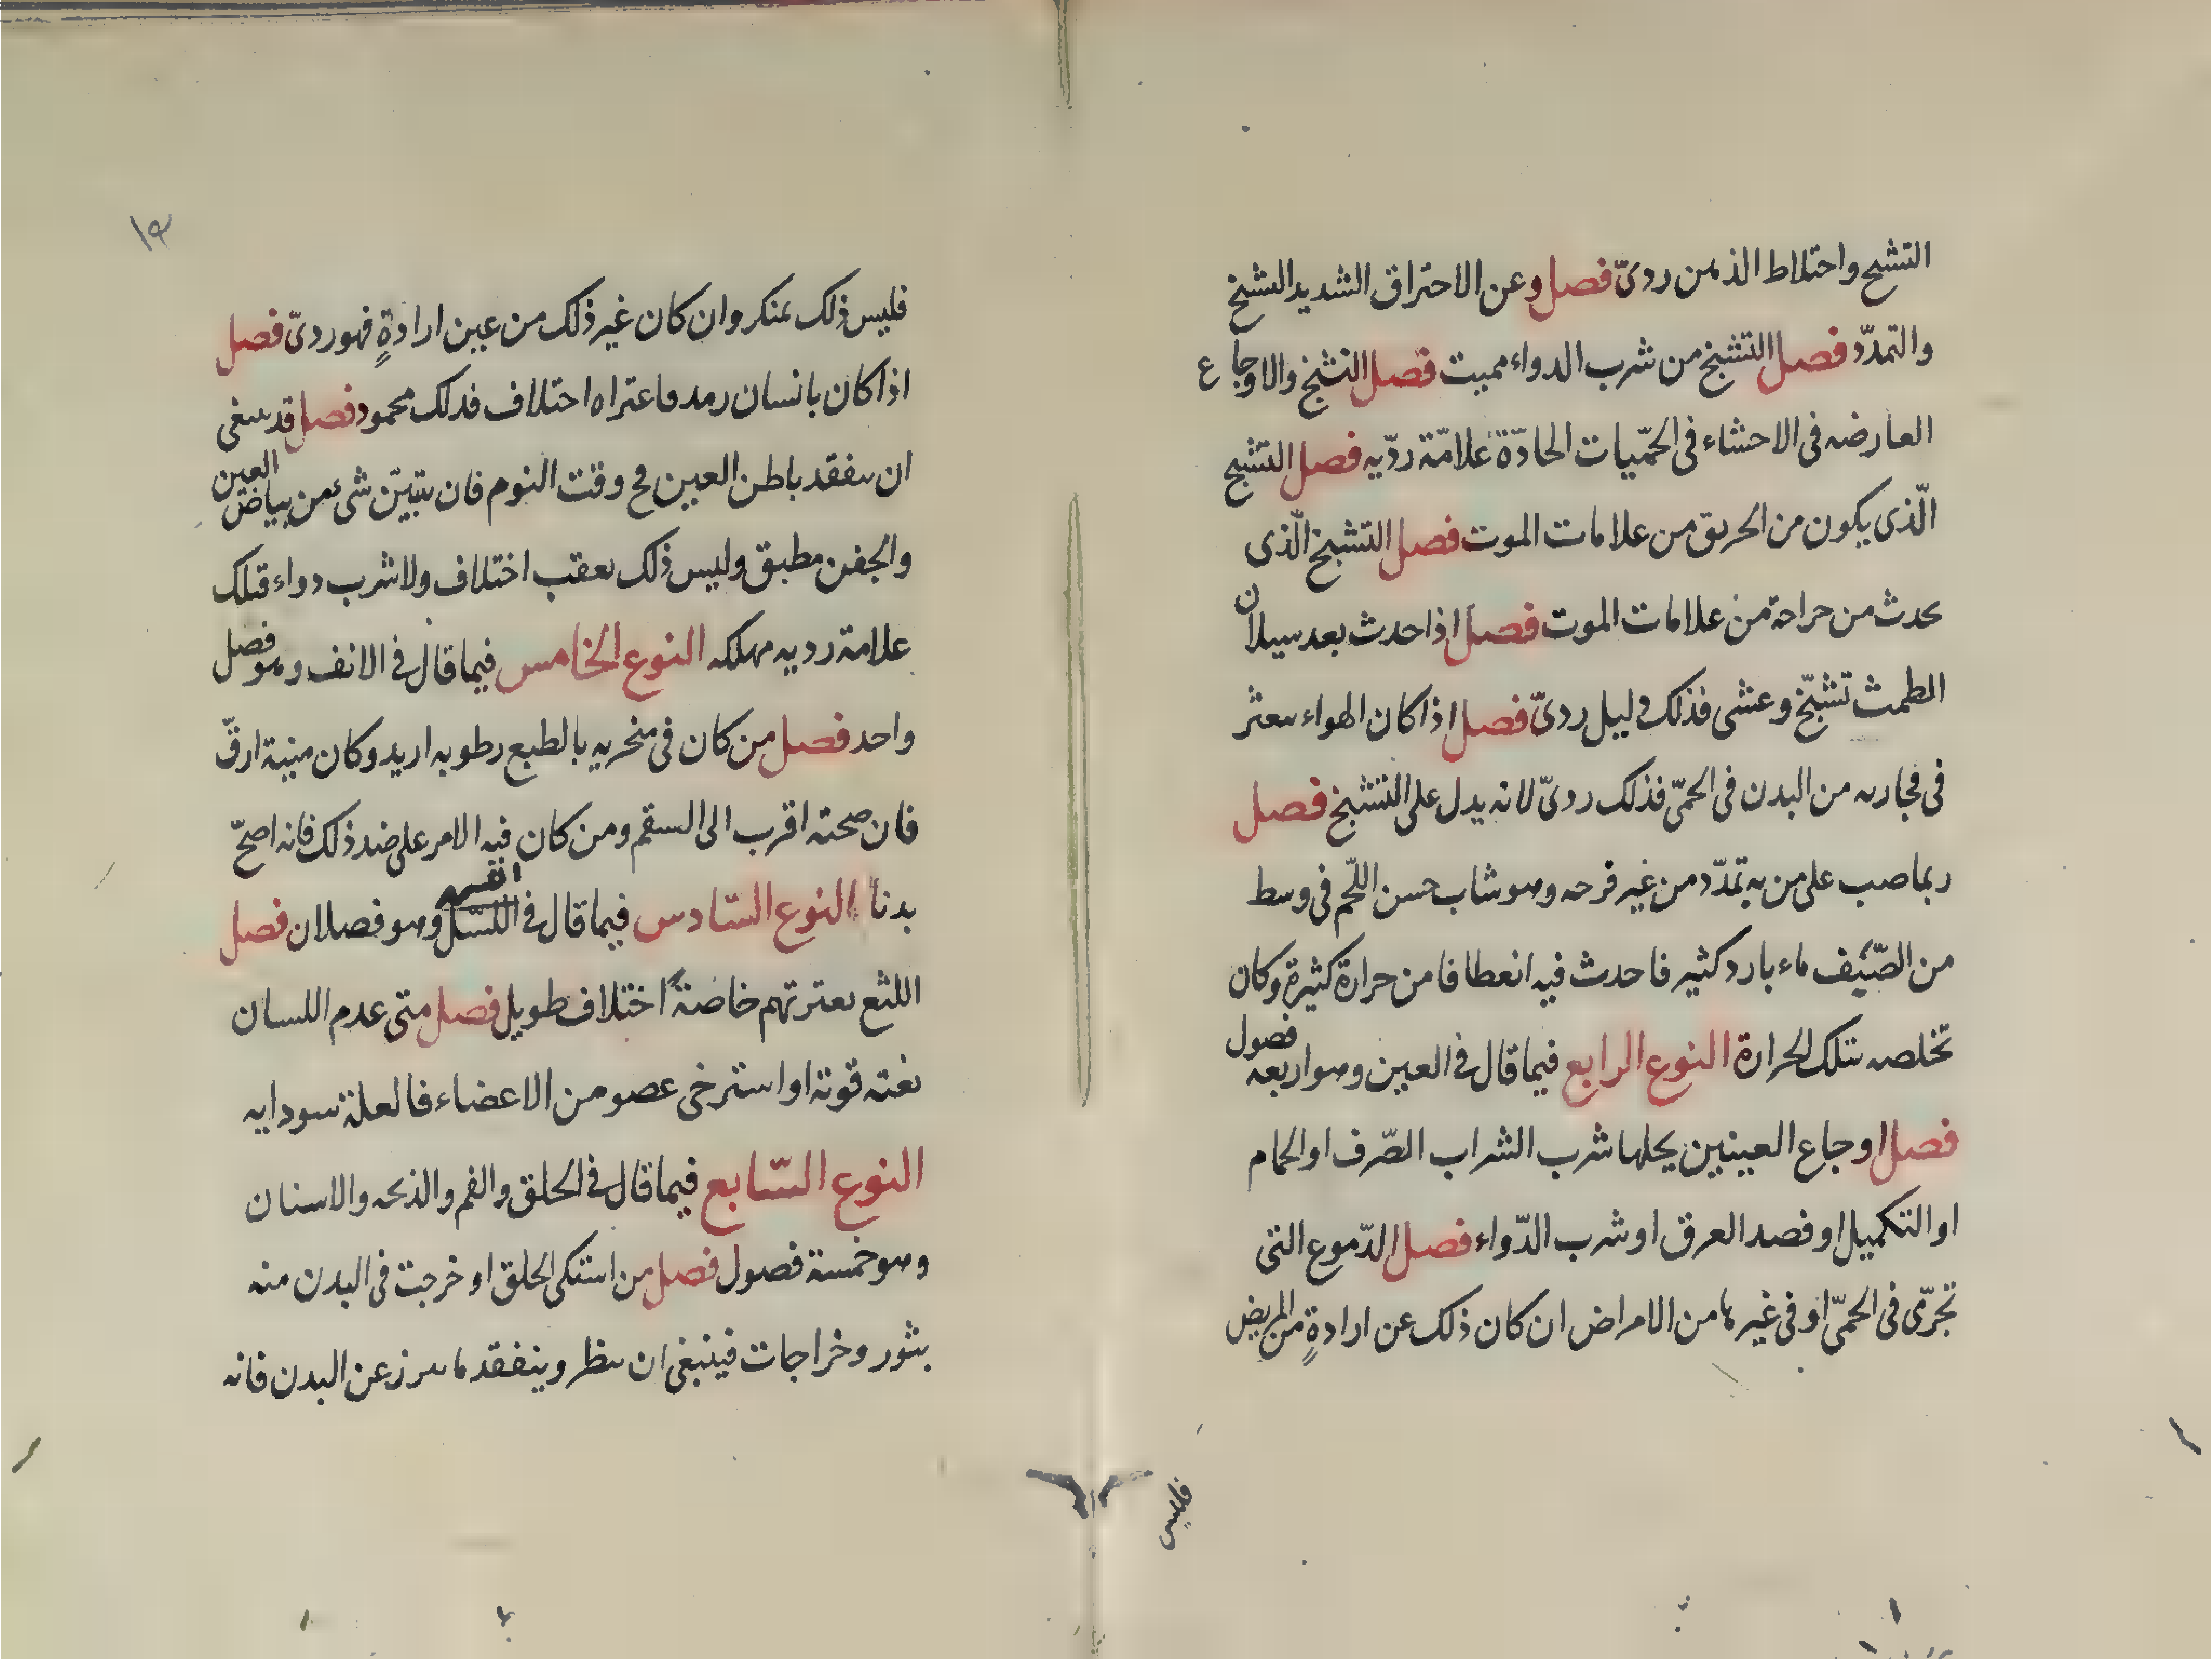 التشنج واختلاط الذهن ردىّ فصل وعن الاحتراق الشديد التشنج
والتمدّد فصل التشنج من شرب الدواء مميت فصل التشنج والاوجاع
العارضه فى الاحشاء فى الحمّيات الحادّة علامّة ردّيه فصل التشنج
الّذى يكون من الحريق من علامات الموت فصل التشنج الّذى
يحدث من جراحة من علامات الموت فصل اذا حدث بعد سيلان
الطمث تشنّج وغشى فذلك دليل ردىّ فصل اذا كان الهواء يتعثر
فى مجاريه من البدن فى الحمّى فذلك ردىّ لانه يدل على التشنج فصل
ربما صب على من به تمدّد من غير قرحه وهو شاب حسن اللّحم فى وسط
من الصّيف ماء بارد كثير فاحدث فيه انعطافا من حرارة كثيرة وكان
تخلصه بتلك الحرارة النوع الرابع فيما قال فى العين وهو اربعه فصول
فصل اوجاع العينين يحلها شرب الشراب الصّرف او الحمام
او التكميل او فصد العرق او شرب الدّواء فصل الدّموع التى
تجرّى فى الحمىّ او فى غيرها من الامراض ان كان ذلك عن ارادةٍ من المريض
فليس
١٣
فليس ذلك بمنكر وان كان غير ذلك من عين ارادةٍ فهو ردىّ فصل
اذا كان بانسان رمد فاعتراه اختلاف فذلك محمود فصل قد ينبغى
ان يتفقد باطن العين فى وقت النوم فان تبيّن شئ من بياض العين
والجفن مطبق وليس ذلك بعقب اختلاف ولا شرب دواء فتلك
علامة رديه مهلكه النوع الخامس فيما قال فى الانف وهو فصل
واحد فصل من كان فى منخريه بالطبع رطوبه ازيد وكان منيه ارقّ
فان صحته اقرب الى السقم ومن كان فيه الامر على ضد ذلك فانه اصحّ
بدنا النوع السّادس فيما قال فى اللسّل وهو فصلان فصل
اللثغ يعتريهم خاصّةً اختلاف طويل فصل متى عدم اللسان
بغته قوته او استرخى عضو من الاعضاء فالعلة سودايه
النوع السّابع فيما قال فى الحلق والفم والذبحه والاسنان
وهو خمسة فصول فصل من اشتكى الحلق او خرجت فى البدن منه
بثور وخراجات فينبغى ان ينظر ويتفقد ما يبرز عن البدن فانه